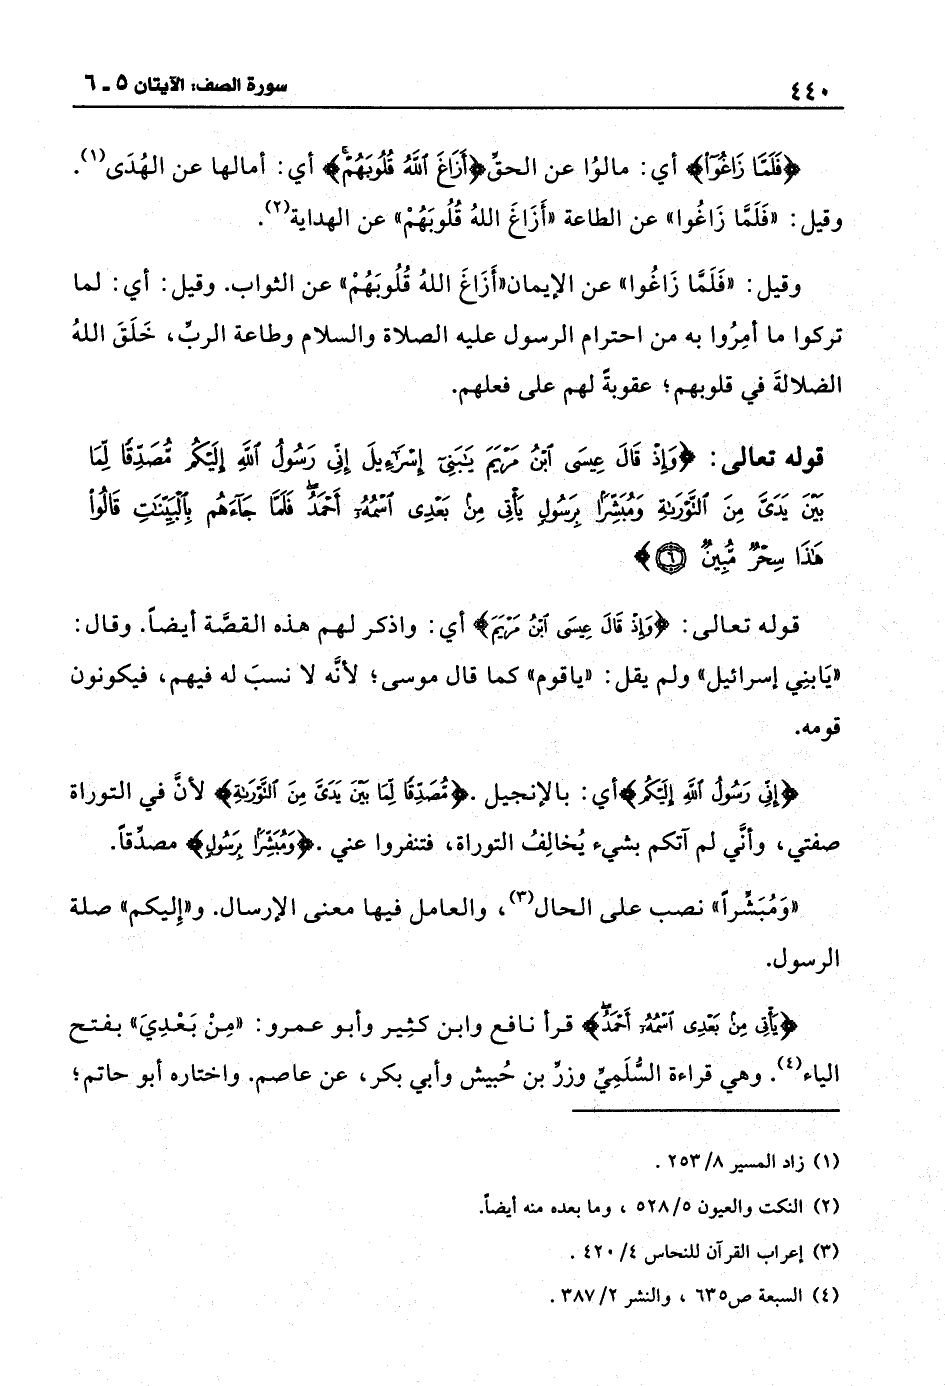 ٤٤٠
سورة الصف: الآيتان ٥ ـ ٦
﴿فَلَمَّا زَاغُوٓاْ﴾ أي: مالوُا عن الحقِّ﴿أَزَاغَ ٱللَّهُ قُلُوبَهُمۡۚ﴾ أي: أمالها عن الهُدَى(١).
وقيل: «فَلَمَّا زَاغُوا» عن الطاعة «أَزَاغَ اللهُ قُلُوبَهُمْ» عن الهداية(٢).
وقيل: «فَلَمَّا زَاغُوا» عن الإيمان«أَزَاغَ اللهُ قُلُوبَهُمْ» عن الثواب. وقيل: أي: لما
تركوا ما أمِرُوا به من احترام الرسول عليه الصلاة والسلام وطاعة الربِّ، خَلَقَ اللهُ
الضلالةَ في قلوبهم؛ عقوبةً لهم على فعلهم.
قوله تعالى: ﴿وَإِذۡ قَالَ عِيسَى ٱبۡنُ مَرۡيَمَ يَٰبَنِيٓ إِسۡرَٰٓءِيلَ إِنِّي رَسُولُ ٱللَّهِ إِلَيۡكُم مُّصَدِّقٗا لِّمَا
بَيۡنَ يَدَيَّ مِنَ ٱلتَّوۡرَىٰةِ وَمُبَشِّرَۢا بِرَسُولٖ يَأۡتِي مِنۢ بَعۡدِي ٱسۡمُهُۥٓ أَحۡمَدُۖ فَلَمَّا جَآءَهُم بِٱلۡبَيِّنَٰتِ قَالُواْ
هَٰذَا سِحۡرٞ مُّبِينٞ ٦﴾
قوله تعالى: ﴿وَإِذۡ قَالَ عِيسَى ٱبۡنُ مَرۡيَمَ﴾ أي: واذكر لهم هذه القصَّة أيضاً. وقال:
«يَابنِي إسرائيل» ولم يقل: «ياقوم» كما قال موسى؛ لأنَّه لا نسبَ له فيهم، فيكونون
قومه.
﴿إِنِّي رَسُولُ ٱللَّهِ إِلَيۡكُم﴾أي: بالإنجيل .﴿مُّصَدِّقٗا لِّمَا بَيۡنَ يَدَيَّ مِنَ ٱلتَّوۡرَىٰةِ﴾ لأنَّ في التوراة
صفتي، وأنَّي لم آتكم بشيء يُخالِفُ التوراة، فتنفروا عني .﴿وَمُبَشِّرَۢا بِرَسُولٖ﴾ مصدِّقاً.
«وَمُبَشِّراً» نصب على الحال(٣)، والعامل فيها معنى الإرسال. و«إليكم» صلة
الرسول.
﴿يَأۡتِي مِنۢ بَعۡدِي ٱسۡمُهُۥٓ أَحۡمَدُۖ﴾ قرأ نافع وابن كثير وأبو عمرو: «مِنْ بَعْدِيَ» بفتح
الياء(٤). وهي قراءة السُّلَمِيِّ وزرِّ بن حُبيش وأبي بكر، عن عاصم. واختاره أبو حاتم؛
(١) زاد المسير ٢٥٣/٨ .
(٢) النكت والعيون ٥٢٨/٥ ، وما بعده منه أيضاً.
(٣) إعراب القرآن للنحاس ٤٢٠/٤ .
(٤) السبعة ص٦٣٥ ، والنشر ٣٨٧/٢ .